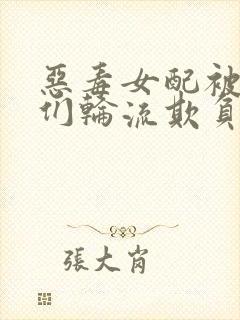 惡毒女配被
们輪流欺負
張大肖